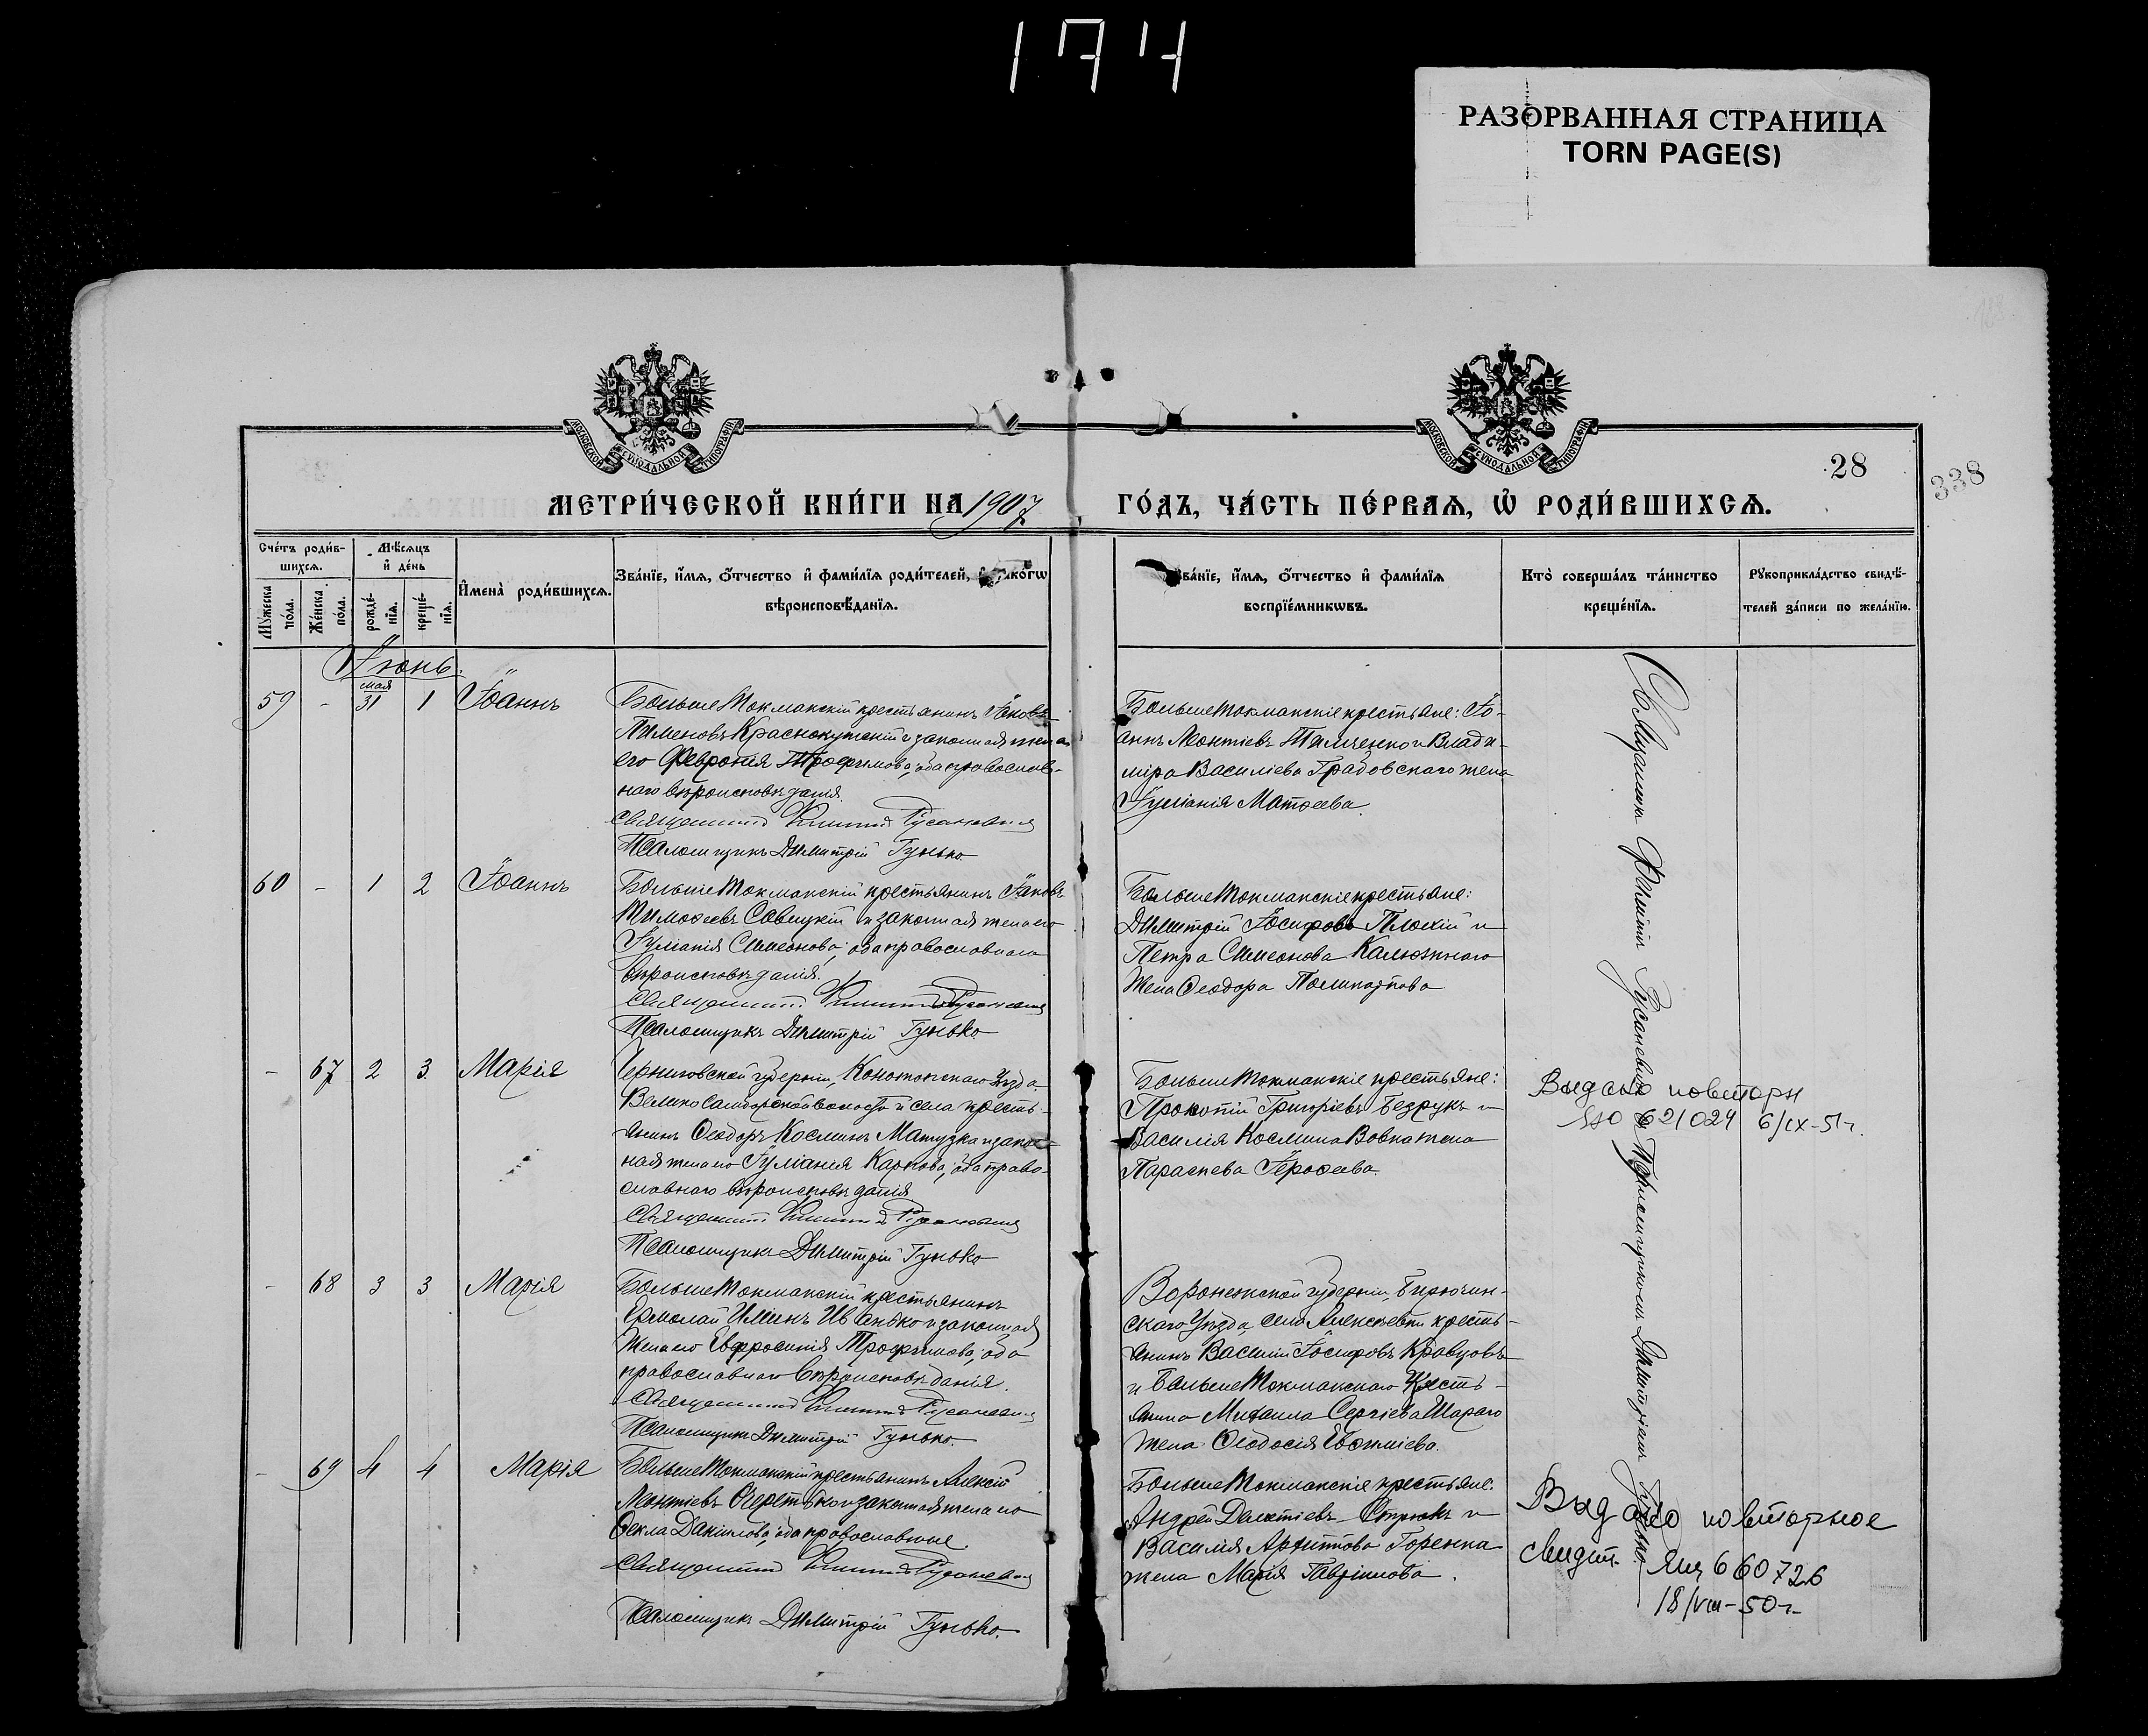 174
РАЗОРВАННАЯ СТРАНИЦА
TORN PAGE(S)
МОСКОВСКОЙ СѴНОДАЛЬНОЙ ТИПОГРАФІИ
МОСКОВСКОЙ СѴНОДАЛЬНОЙ ТИПОГРАФІИ
28
338
МЕТРИ́ЧЕСКОЙ КНИ́ГИ НА 1907 ГО́ДЪ, ЧА́СТЬ ПЕ́РВАѦ, Ѡ҆ РОДИ́ВШИХСѦ.
Сче́тъ роди́в-
шихсѧ.
Мꙋ́жеска по́ла.
Же́нска по́ла.
Мѣ́сѧцъ
и҆ де́нь
рожде́-
нїѧ.
креще́-
нїѧ.
И҆мена̀ роди́вшихсѧ.
Зва́нїе, и҆́мѧ, ѻ҆́тчество и҆ фами́лїѧ роди́телей, и҆ како́гѡ
вѣроисповѣ́данїѧ.
Зва́нїе, и҆́мѧ, ѻ҆́тчество и҆ фами́лїѧ
воспрїе́мникѡвъ.
Кто̀ соверша́лъ та́инство
креще́нїѧ.
Рꙋкоприкла́дство свидѣ́-
телей за́писи по жела́нїю.
Іюнь.
59 - мая 31 1 Іоаннъ
БольшеТокмакскій крестьянинъ Іаковъ
Пименовъ Краснокутскій и законная жена
его Февронія Трофимова, оба православ-
наго вѣроисповѣданія.
Священникъ Филиппъ Русаневичъ
Псаломщикъ Димитрій Гунько
БольшеТокмакскіе крестьяне: Іо-
аннъ Леонтіевъ Тимченко и Влади-
міра Василіева Градовскаго жена
Іуліанія Матѳеева.
60 - 1 2 Іоаннъ
БольшеТокмакскій крестьянинъ Іаковъ
Тимоѳеевъ Савицкій и законная жена его
Іуліанія Симеонова; оба православнаго
вѣроисповѣданія.
Священникъ Филиппъ Русаневичъ
Псаломщикъ Димитрій Гунько.
БольшеТокмакскіе крестьяне:
Димитрій Іосифовъ Плохій и
Петра Симеонова Калюжнаго
жена Ѳеодора Поликарпова
- 67 2 3. Марія
Черниговской губерніи, Конотопскаго Уѣзда
Велико Самборской волости и села кресть-
янинъ Ѳеодоръ Косминъ Матузка и закон-
ная жена его Іуліанія Карпова; оба право-
славнаго вѣроисповѣданія
Священникъ Филиппъ Русаневичъ
Псаломщикъ Димитрій Гунько
БольшеТокмакскіе крестьяне:
Прокопій Григоріевъ Бедрукъ и
Василія Космина Вовка жена
Параскева Іероѳеева.
Выдано повторн
621024 6/IX-51г.
- 68 3 3 Марія
БольшеТокмакскій крестьянинъ
Ермолай Ильинъ Иванько и законная
жена его Евфросинія Трофимова; оба
православнаго вѣроисповѣданія.
Священникъ Филиппъ Русаневичъ
Псаломщикъ Димитрій Гунько.
Воронежской губерніи, Бирючин-
скаго Уѣзда, села Алексѣевки кресть-
янинъ Василій Іосифовъ Кравцовъ
и БольшеТокмакскаго кресть-
янина Михаила Сергіева Шараго
жена Ѳеодосія Евфиміева.
- 69 4 4 Марія
БольшеТокмакскій крестьянинъ Алексій
Леонтіевъ Очеретько и законная жена его
Ѳекла Даніилова, оба православные
Священникъ Филиппъ Русаневичъ
Псаломщикъ Димитрій Гунько.
БольшеТокмакскіе крестьяне.
Андрей Дементіевъ Стрюкъ и
Василія Архиппова Горенка
жена Марія Гавріилова.
Выдано повторное
свидет. 660726
18/VIII-50г.
Священникъ Филиппъ Русаневичъ съ Псаломщикомъ Димитріемъ Гунько.